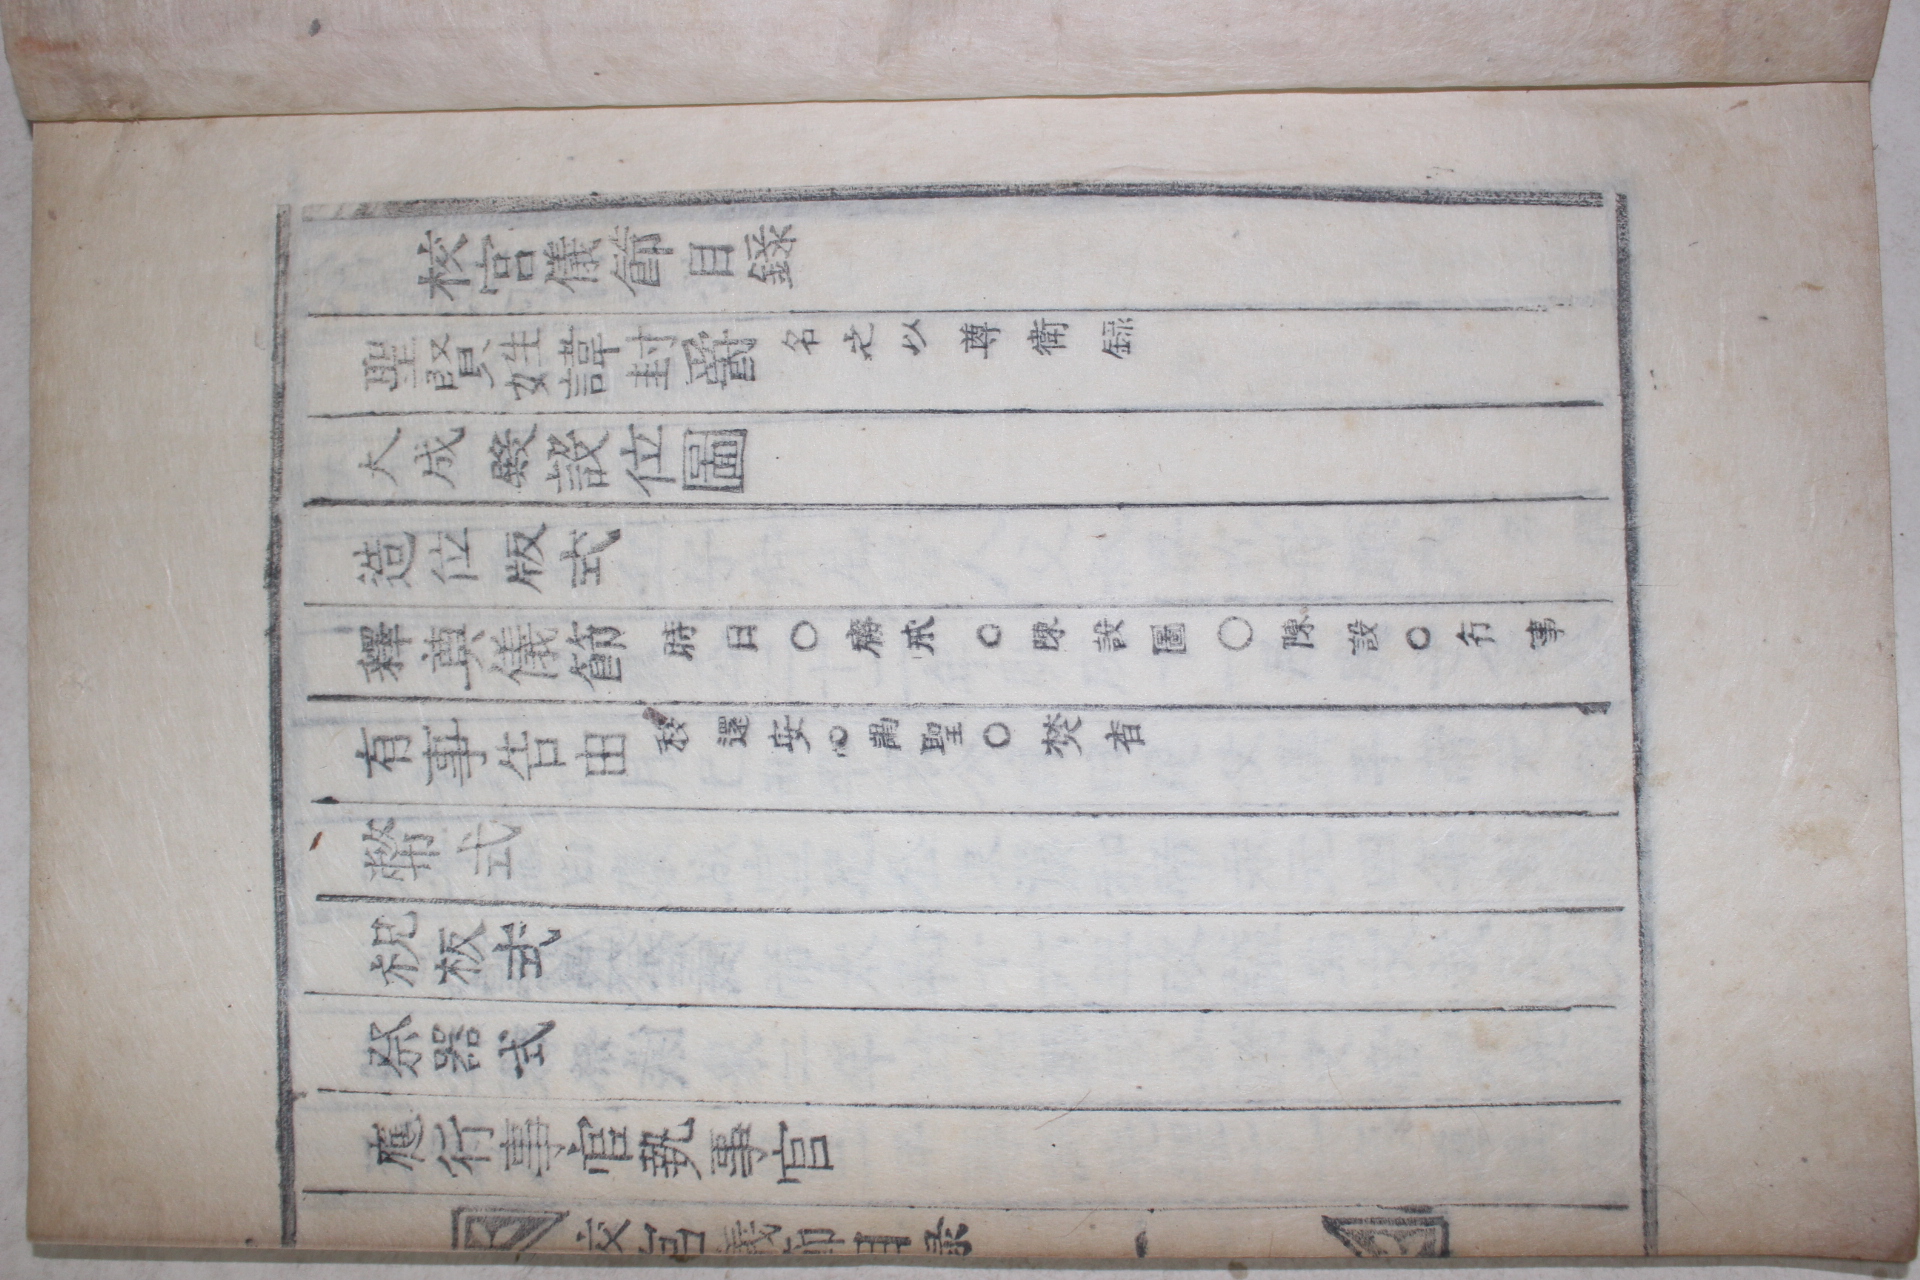 校宮儀節目錄
聖賢姓諱封爵 名之以尊衛錄
大成殿設位圖
造位版式
釋奠儀節 時日○齋戒○陳設圖○陳設○行事
有事告由 移還安○謁聖○焚香
幣式
祝板式
祭器式
應行事官執事官
校宮儀節目錄 一